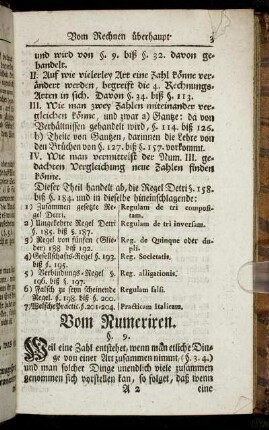 Vom Rechnen überhaupt 3
und wird von §. 9. biß §. 32. davon ge-
handelt.
II. Auf wie vielerley Art eine Zahl könne ver-
ändert werden, begreift die 4. Rechnungs-
Arten in sich. Davon §. 34. biß §. 113.
III. Wie man zwey Zahlen miteinander ver-
gleichen könne, und zwar a) Gantze: da von
Verhältnissen gehandelt wird, §. 114. biß 126.
b) Theile von Gantzen, darinnen die Lehre von
den Brüchen von §. 127. biß §. 157. vorkommt.
IV. Wie man vermittelst der Num. III. ge-
dachten Vergleichung neue Zahlen finden
könne.
Dieser Theil handelt ab, die Regel Detri §. 158.
biß §. 184. und in dieselbe hineinschlagende:
1) Zusammen gesetzte Re- Regulam de tri composi-
gel Detri. tam.
2) Umgekehrte Regel Detri Regulam de tri inversam.
§. 185. biß §. 187.
3) Regel von fünfen (Glie- Reg. de Quinque oder du-
der) 188 biß 192. pli.
4) Gesellschafts-Regel §. 193. Reg. Societatis.
biß §. 195.
5) Verbindungs-Regel §. Reg. alligationis.
196. biß §. 197.
6) Falsch zu seyn scheinende Regulam falsi.
Regel. §. 198. biß §. 200.
7) Welsche Practic §. 201-204. Practicam Italicam.
Vom Numeriren.
§. 9.
Weil eine Zahl entstehet, wenn man etliche Din-
ge von einer Art zusammen nimmt, (§. 3. 4.)
und man solcher Dinge unendlich viele zusammen
genommen sich vorstellen kan, so folget, daß wenn
A 2 eine